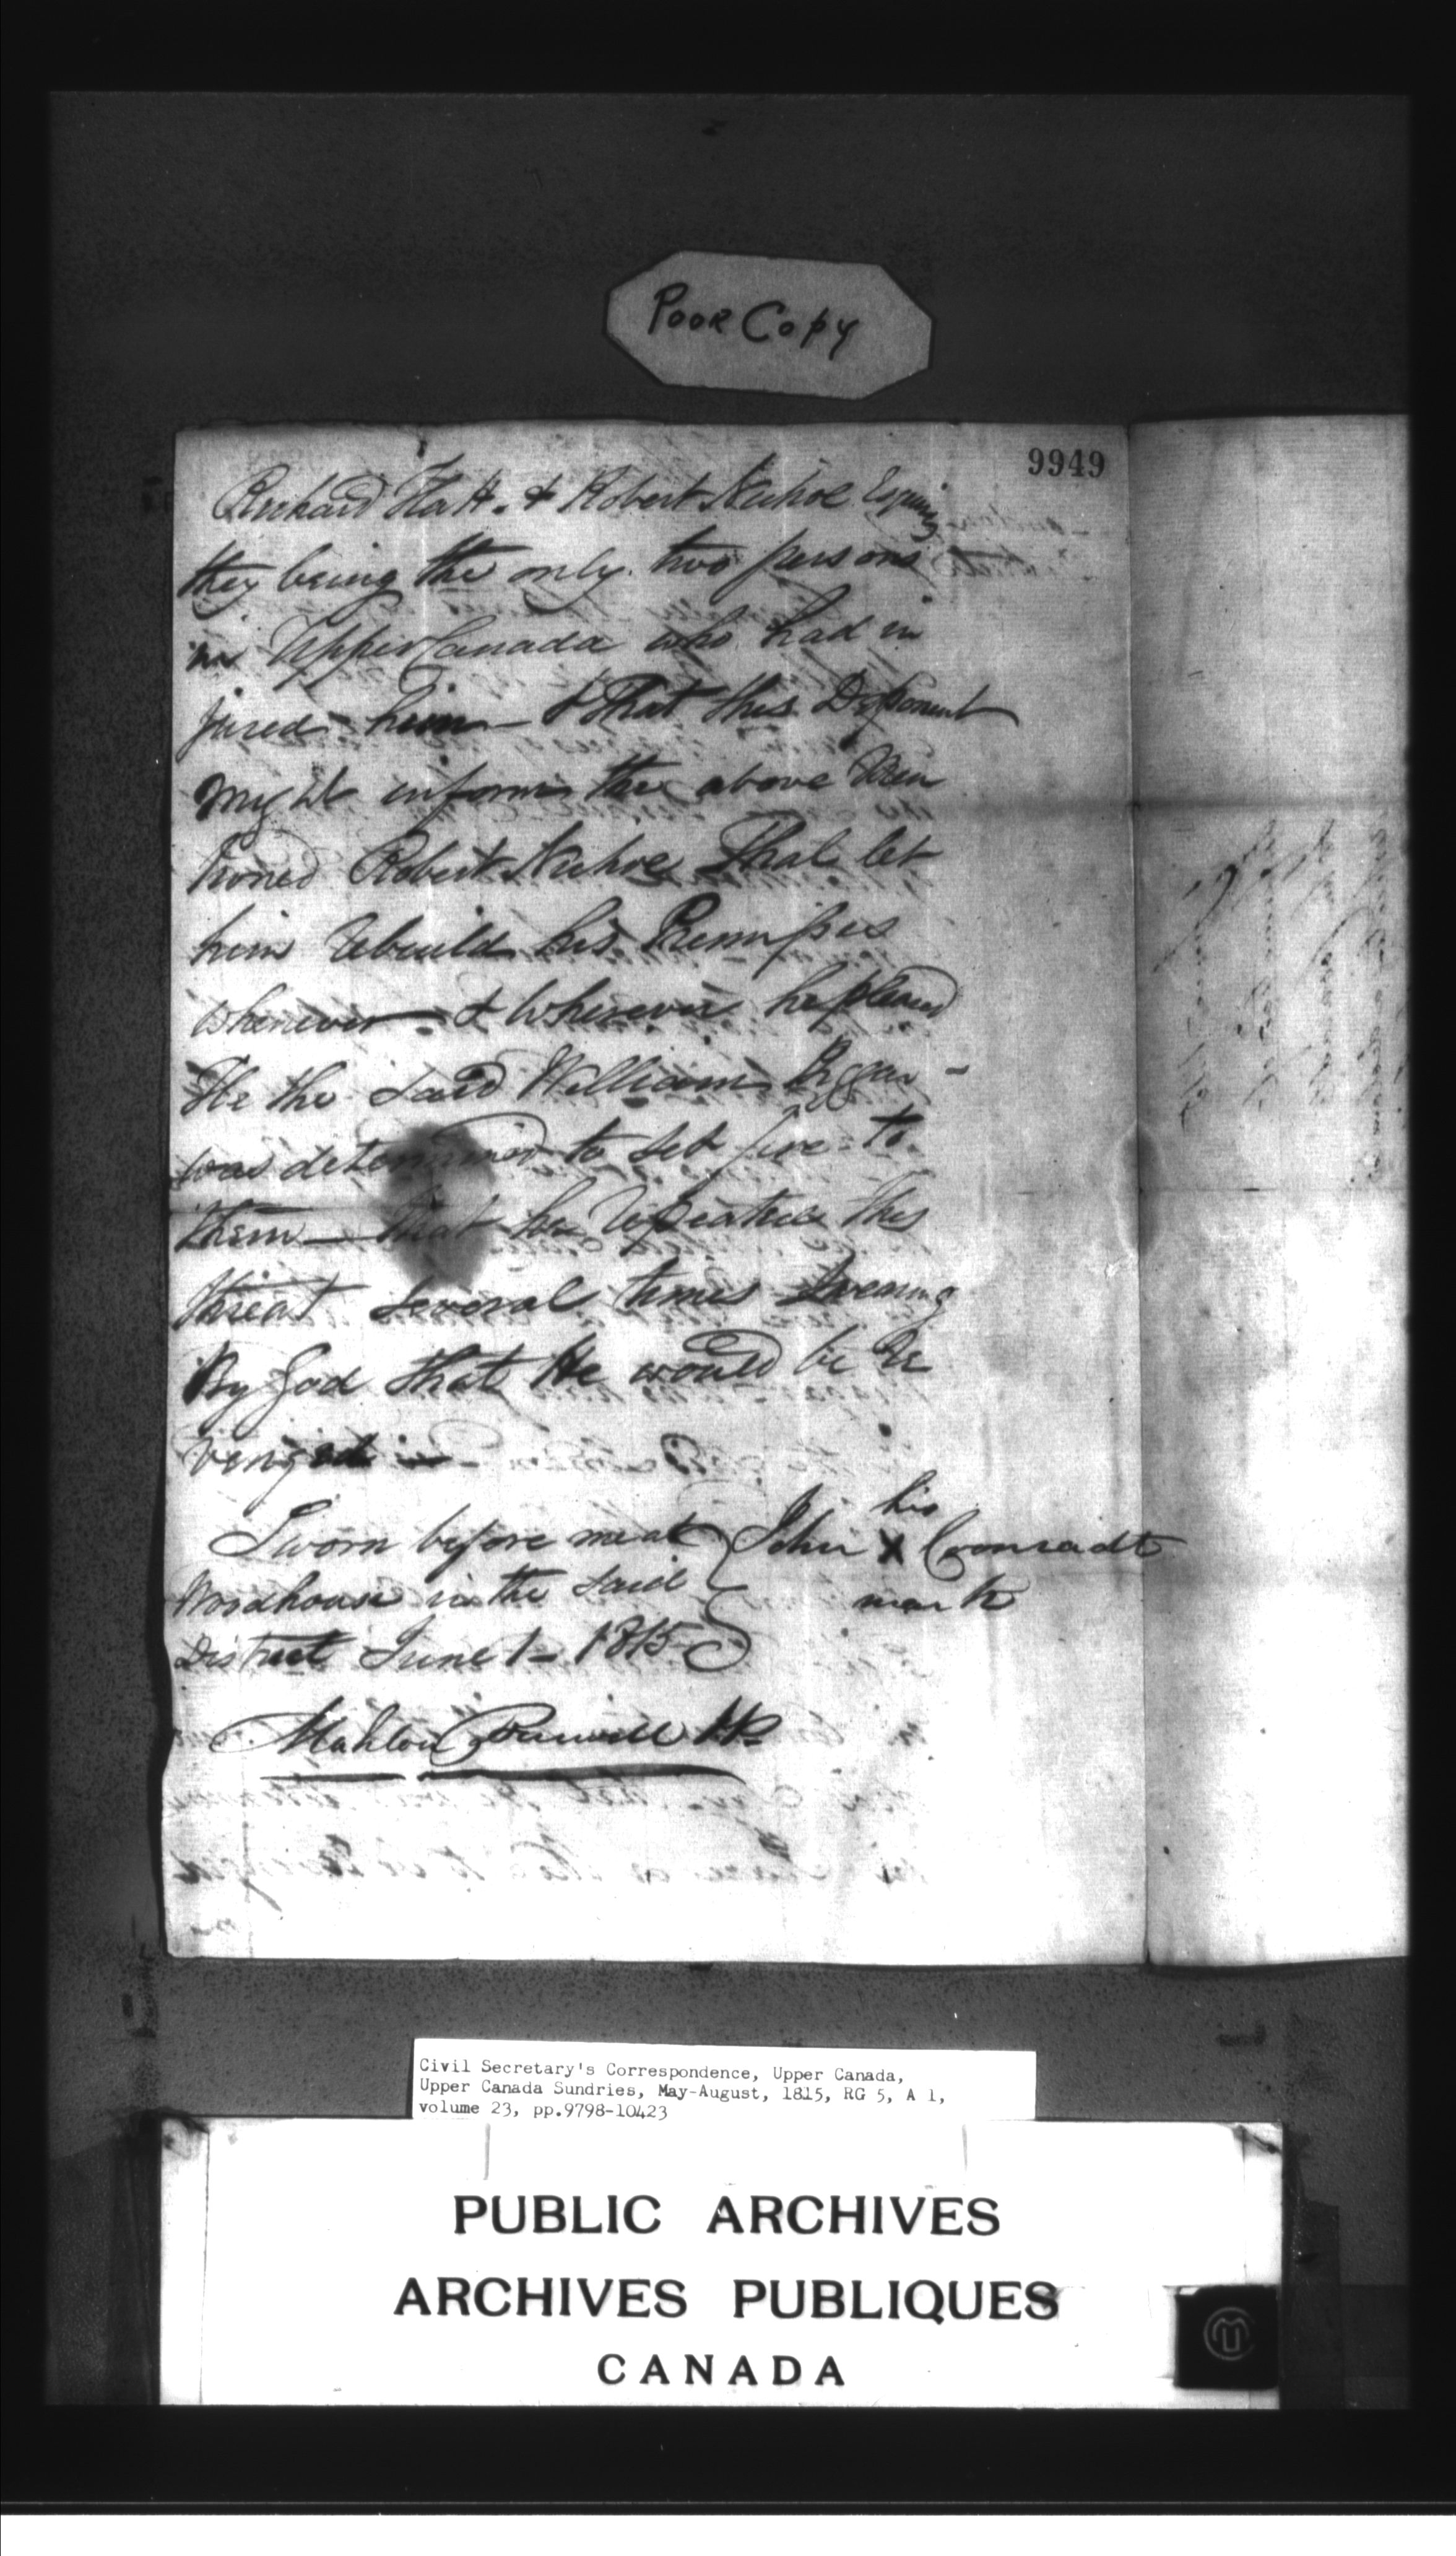 Poor Copy
9949
Richard Hatt. & Robert Nichol Esquires
they being the only two persons
in Upper Canada who had in
jured him — & that this Deponent
might inform the above Men
tioned Robert Nichol That let
him rebuild his Premises
whenever & wherever he pleased
He the said William
was determined to set fire to
them — that he repeated this
threat several times swearing
By God that He would be re
venged
his
Sworn before me at John X Coonradt
Woodhouse in the said mark
District June 1 – 1815
Mahlon Burwell JP
Civil Secretary's Correspondence, Upper Canada,
Upper Canada Sundries, May-August, 1815, RG 5, A 1,
volume 23, pp.9798-10423
PUBLIC ARCHIVES
ARCHIVES PUBLIQUES
CANADA